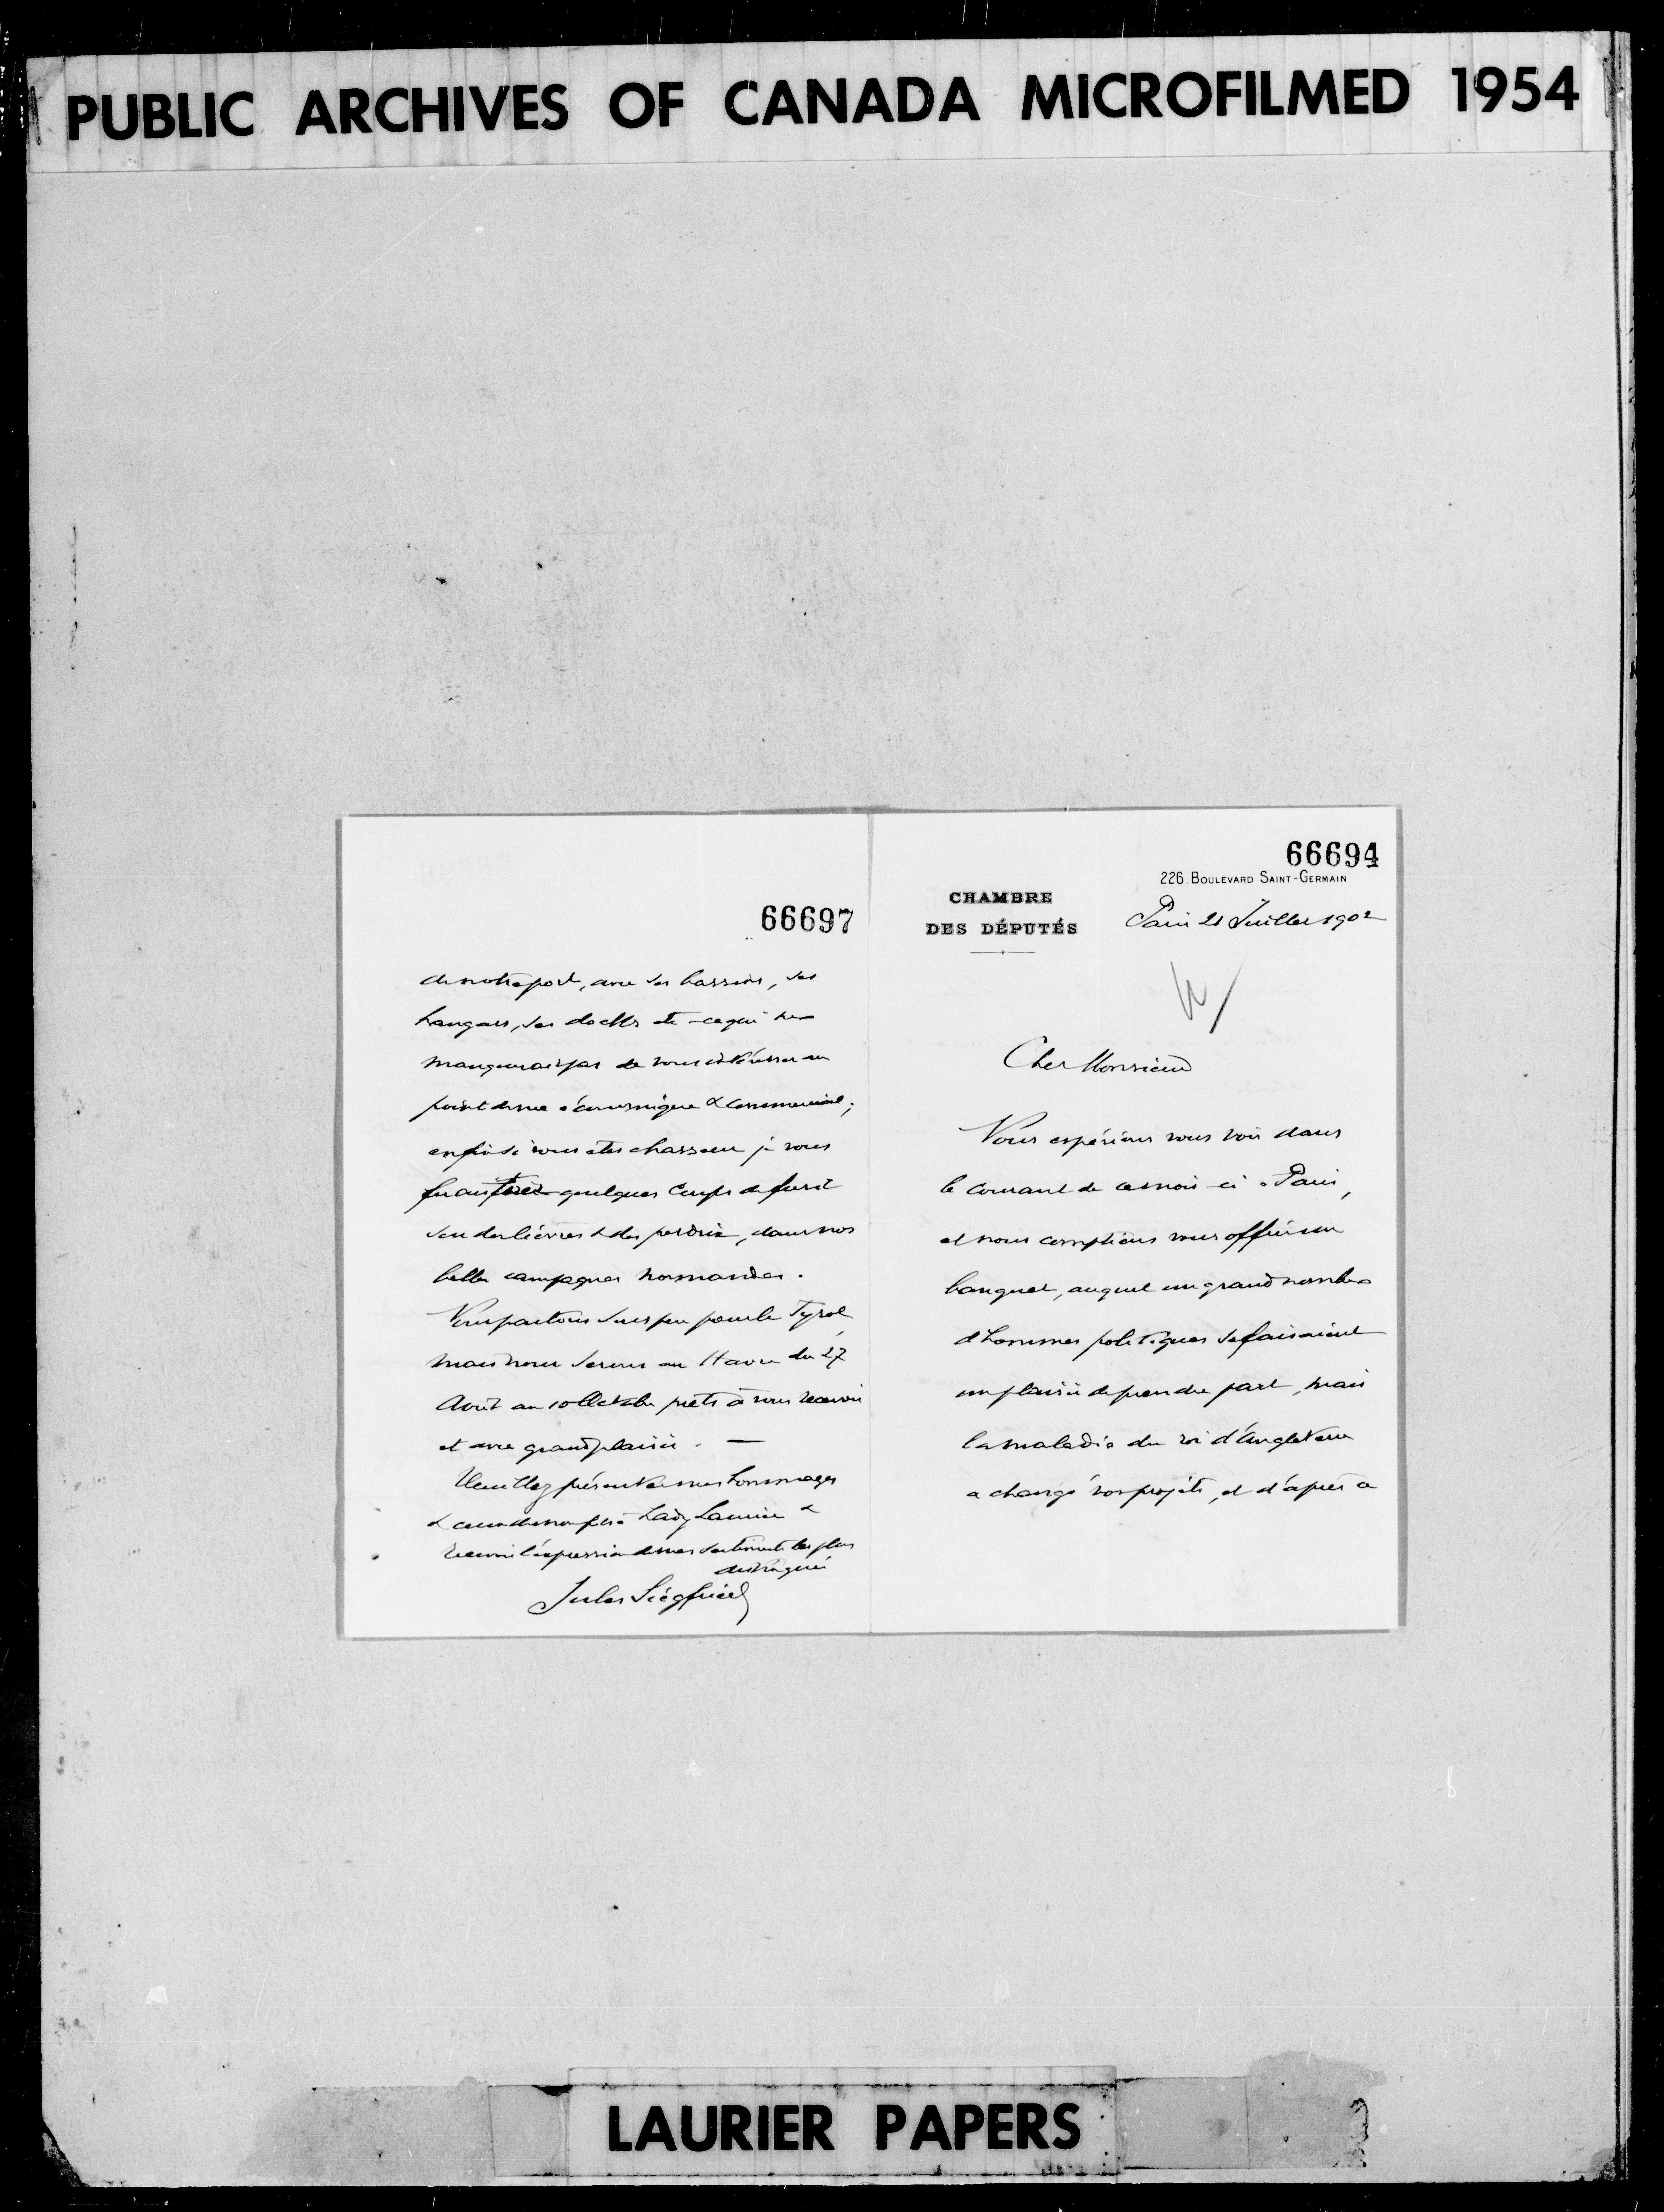 PUBLIC ARCHIVES OF CANADA MICROFILMED 1954
66697
de notre port, avec ses bassins, ses
hangars, ses docks etc - ce qui ne
manquerait pas de vous intéresser au
point de vue économique & commercial;
enfin si vous êtes chasseur je vous
ferais tirer quelques coups de fusil
sur des lièvres & des perdrix, dans nos
belles campagnes normandes.
Nous partons sous peu pour le Tyrol,
mais nous serons au Havre du 27
Août au 10 Octobre prêts à vous recevoir
et avec grand plaisir. —
Veuillez présenter mes hommages
& ceux de mon fils à Lady Laurier &
recevoir l'expression de mes sentiments les plus
distingués
Jules Siegfried
66694
226. BOULEVARD SAINT-GERMAIN
CHAMBRE
DES DÉPUTÉS
Paris 21 Juillet 1902
Cher Monsieur
Nous espérions vous voir dans
le courant de ce mois-ci à Paris,
et nous comptions vous offrir un
banquet, auquel un grand nombre
d'hommes politiques se faisaient
un plaisir de prendre part, mais
la maladie du roi d'Angleterre
a changé vos projets, et d'après ce
LAURIER PAPERS